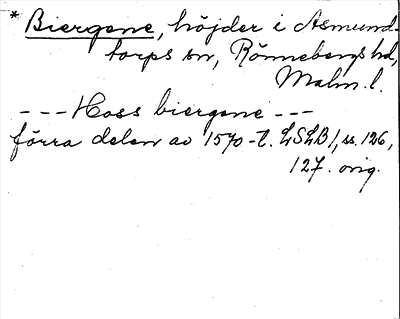 * Biergene, höjder i Asmund-
torps sn, Rönnebergs hd,
Malm. l.
--- Hoss biergene ---
förra delen av 1570-t. LSLB 1, ss. 126,
127. orig.